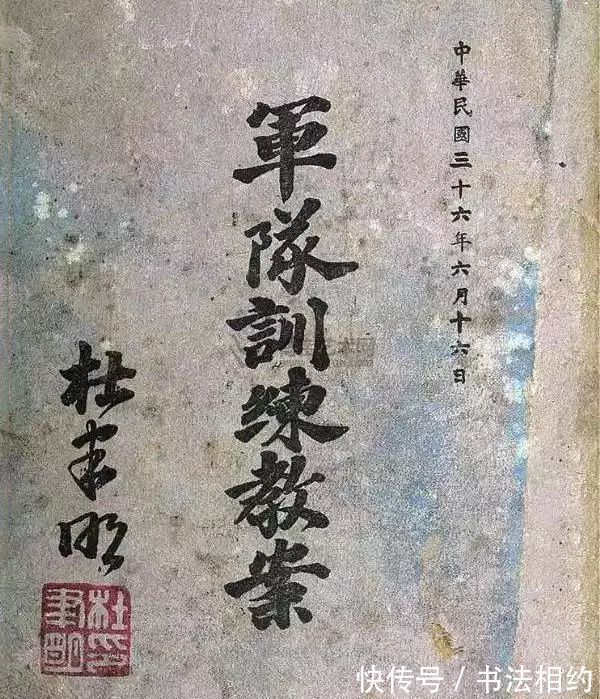 中華民國三十六年六月十六日
軍隊訓練教案
杜聿明
杜聿明印
快传号 / 书法相约